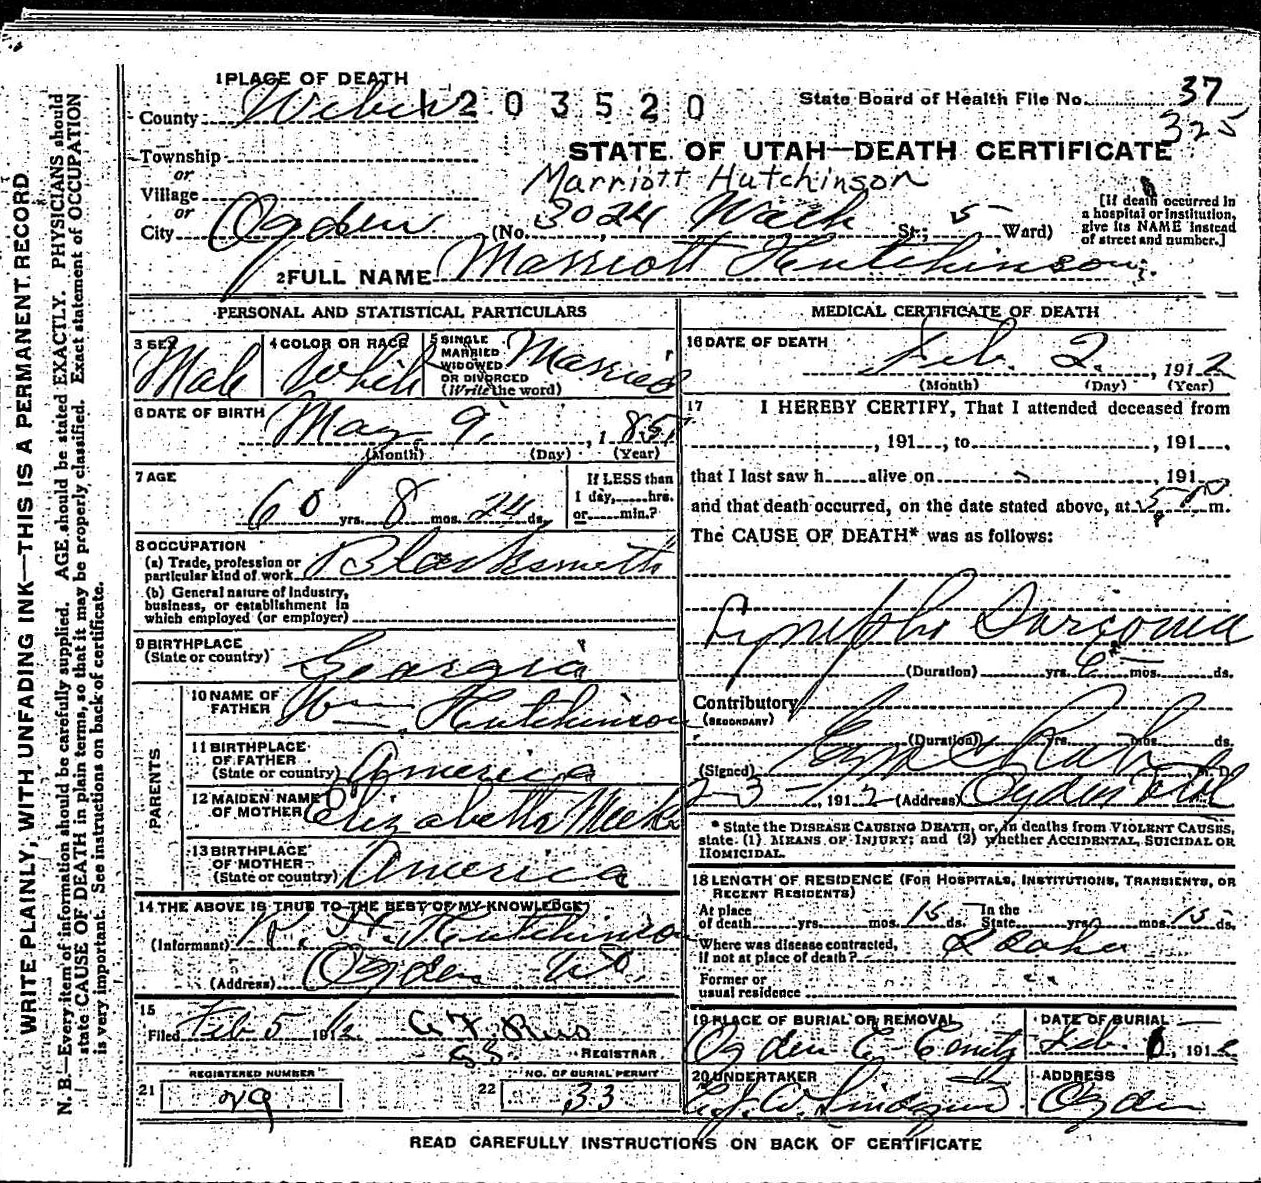 WRITE PLAINLY, WITH UNFADING INK—THIS IS A PERMANENT RECORD
N. B.—Every item of information should be carefully supplied. AGE should be stated EXACTLY. PHYSICIANS should
state CAUSE OF DEATH in plain terms, so that it may be properly classified. Exact statement of OCCUPATION
is very important. See instructions on back of certificate.
1 PLACE OF DEATH
County Weber 1203520
State Board of Health File No. 37
325
Township
or
Village
or
City Ogden
STATE OF UTAH—DEATH CERTIFICATE
Marriott Hutchinson
(No. 3024 Wall St.; 5 Ward)
[If death occurred in
a hospital or institution,
give its NAME instead
of street and number.]
2 FULL NAME Marriott Hutchinson
PERSONAL AND STATISTICAL PARTICULARS
3 SEX Male
4 COLOR OR RACE White
5 SINGLE
MARRIED
WIDOWED
OR DIVORCED
(Write the word) Married
6 DATE OF BIRTH May 9, 185
(Month) (Day) (Year)
7 AGE
60 yrs. 8 mos. 24 ds.
If LESS than
1 day, hrs.
or min.?
8 OCCUPATION
(a) Trade, profession or
particular kind of work Blacksmith
(b) General nature of industry,
business, or establishment in
which employed (or employer)
9 BIRTHPLACE
(State or country) Georgia
PARENTS
10 NAME OF
FATHER Wm Hutchinson
11 BIRTHPLACE
OF FATHER
(State or country) America
12 MAIDEN NAME
OF MOTHER Elizabeth Meeks
13 BIRTHPLACE
OF MOTHER
(State or country) America
14 THE ABOVE IS TRUE TO THE BEST OF MY KNOWLEDGE
(Informant) Hutchinson
(Address) Ogden Ut.
15
Filed Feb 5 1912
REGISTRAR
21 REGISTERED NUMBER
29
22 NO. OF BURIAL PERMIT
33
MEDICAL CERTIFICATE OF DEATH
16 DATE OF DEATH
Feb. 2, 1912
(Month) (Day) (Year)
17 I HEREBY CERTIFY, That I attended deceased from
, 191 , to , 191 ,
that I last saw h alive on , 191
and that death occurred, on the date stated above, at 5 m.
The CAUSE OF DEATH* was as follows:
Lympho Sarcoma
(Duration) yrs. 6 mos. ds.
Contributory
(SECONDARY)
(Duration) yrs. mos. ds.
(Signed) M. D.
2-3-, 1912 (Address) Ogden Utah
* State the DISEASE CAUSING DEATH, or, in deaths from VIOLENT CAUSES,
state (1) MEANS OF INJURY; and (2) whether ACCIDENTAL, SUICIDAL OR
HOMICIDAL.
18 LENGTH OF RESIDENCE (FOR HOSPITALS, INSTITUTIONS, TRANSIENTS, OR
RECENT RESIDENTS)
At place
of death yrs. mos. 15 ds. In the
State yrs. mos. 15 ds.
Where was disease contracted,
if not at place of death? Idaho
Former or
usual residence
19 PLACE OF BURIAL OR REMOVAL
Ogden
DATE OF BURIAL
Feb. 1912
20 UNDERTAKER
Lindquist
ADDRESS
Ogden
READ CAREFULLY INSTRUCTIONS ON BACK OF CERTIFICATE